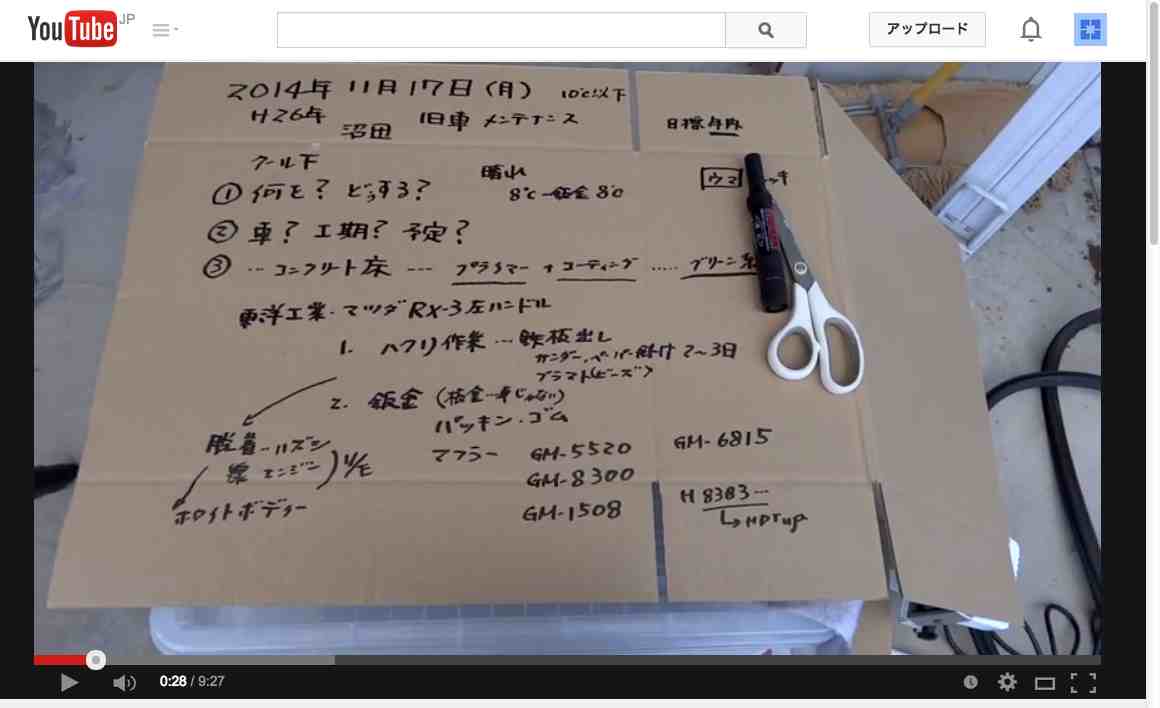 YouTube JP
アップロード
2014年 11月17日(月) 10℃以下
H26年 沼田 旧車 メンテナンス
目標年内
クール下
晴れ
① 何を? どうする?
8℃→鈑金 8℃
ウマ
② 車? 工期? 予定?
③ …コンクリート床 ---- プライマー + コーティング ..... グリーン系
東洋工業・マツダ RX-3 左ハンドル
1. ハクリ作業…鉄板出し
サンダー、ペーパー掛け 2~3日
ブラスト(ビーズ)
2. 鈑金 (板金→車じゃない)
パッキン・ゴム
脱着--ハズシ
エンジン
マフラー GM-5520
GM-6815
GM-8300
ホワイトボディー
GM-1508
H 8383…
↳HDTup
0:28 / 9:27